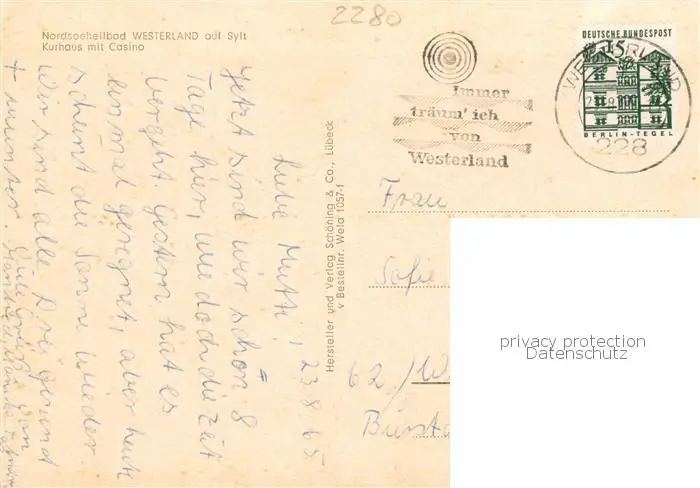 2280
Nordseeheilbad WESTERLAND auf Sylt
Kurhaus mit Casino
Immer
träum' ich
von
Westerland
DEUTSCHE BUNDESPOST
15
BERLIN-TEGEL
WESTERLAND
228
Hersteller und Verlag Schöning & Co., Lübeck
v Bestellnr. Wela 1057-f
23.8.65
Liebe Mutti,
jetzt sind wir schon 8
Tage hier, wie doch die Zeit
vergeht. Gestern hat es
einmal geregnet, aber heute
scheint die Sonne wieder
Wir sind alle Drei gesund
+ munter. Viele Grüße von
Frau
Sofie
62 / W
Burst
privacy protection
Datenschutz